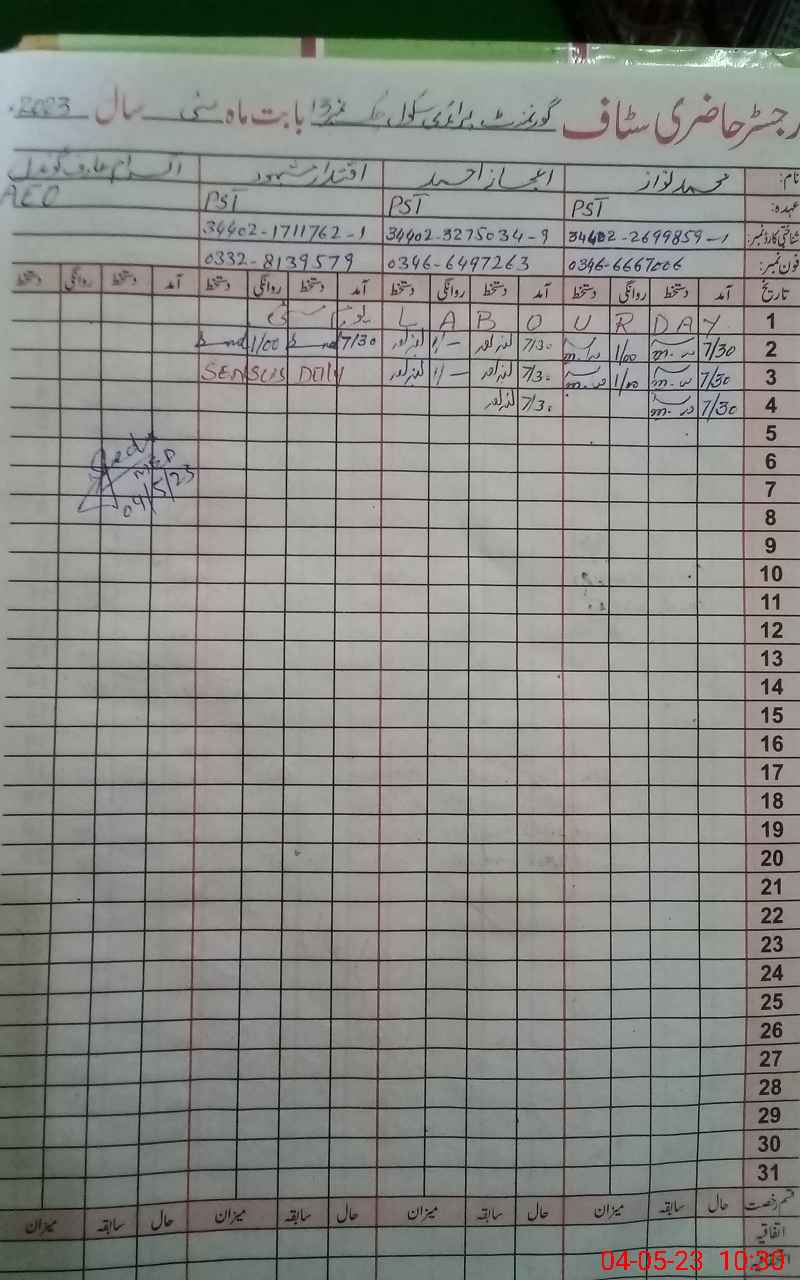 رجسٹر حاضری سٹاف گورنمنٹ پرائمری سکول چک نمبر 13 بابت ماہ مئی سال 2023
نام: محمد نواز اعجاز احمد اقتدار
عہدہ: PST PST PST AEO
شناختی کارڈ نمبر: 34402-2699859-1 34402-3275034-9 34402-1711762-1
فون نمبر: 0346-6667006 0346-6497263 0332-8139579
تاریخ آمد دستخط روانگی دستخط آمد دستخط روانگی دستخط آمد دستخط روانگی دستخط آمد دستخط روانگی دستخط
1 LABOUR DAY یوم مئی
2 7/30 1/00 7/30 7/30 1/00
3 7/30 1/00 7/30 SENSUS DOLY
4 7/30 7/30
5
6
7
04/5/23
8
9
10
11
12
13
14
15
16
17
18
19
20
21
22
23
24
25
26
27
28
29
30
31
قسم رخصت حال سابقہ میزان حال سابقہ میزان حال سابقہ میزان حال سابقہ میزان
اتفاقیہ
04-05-23 10:36